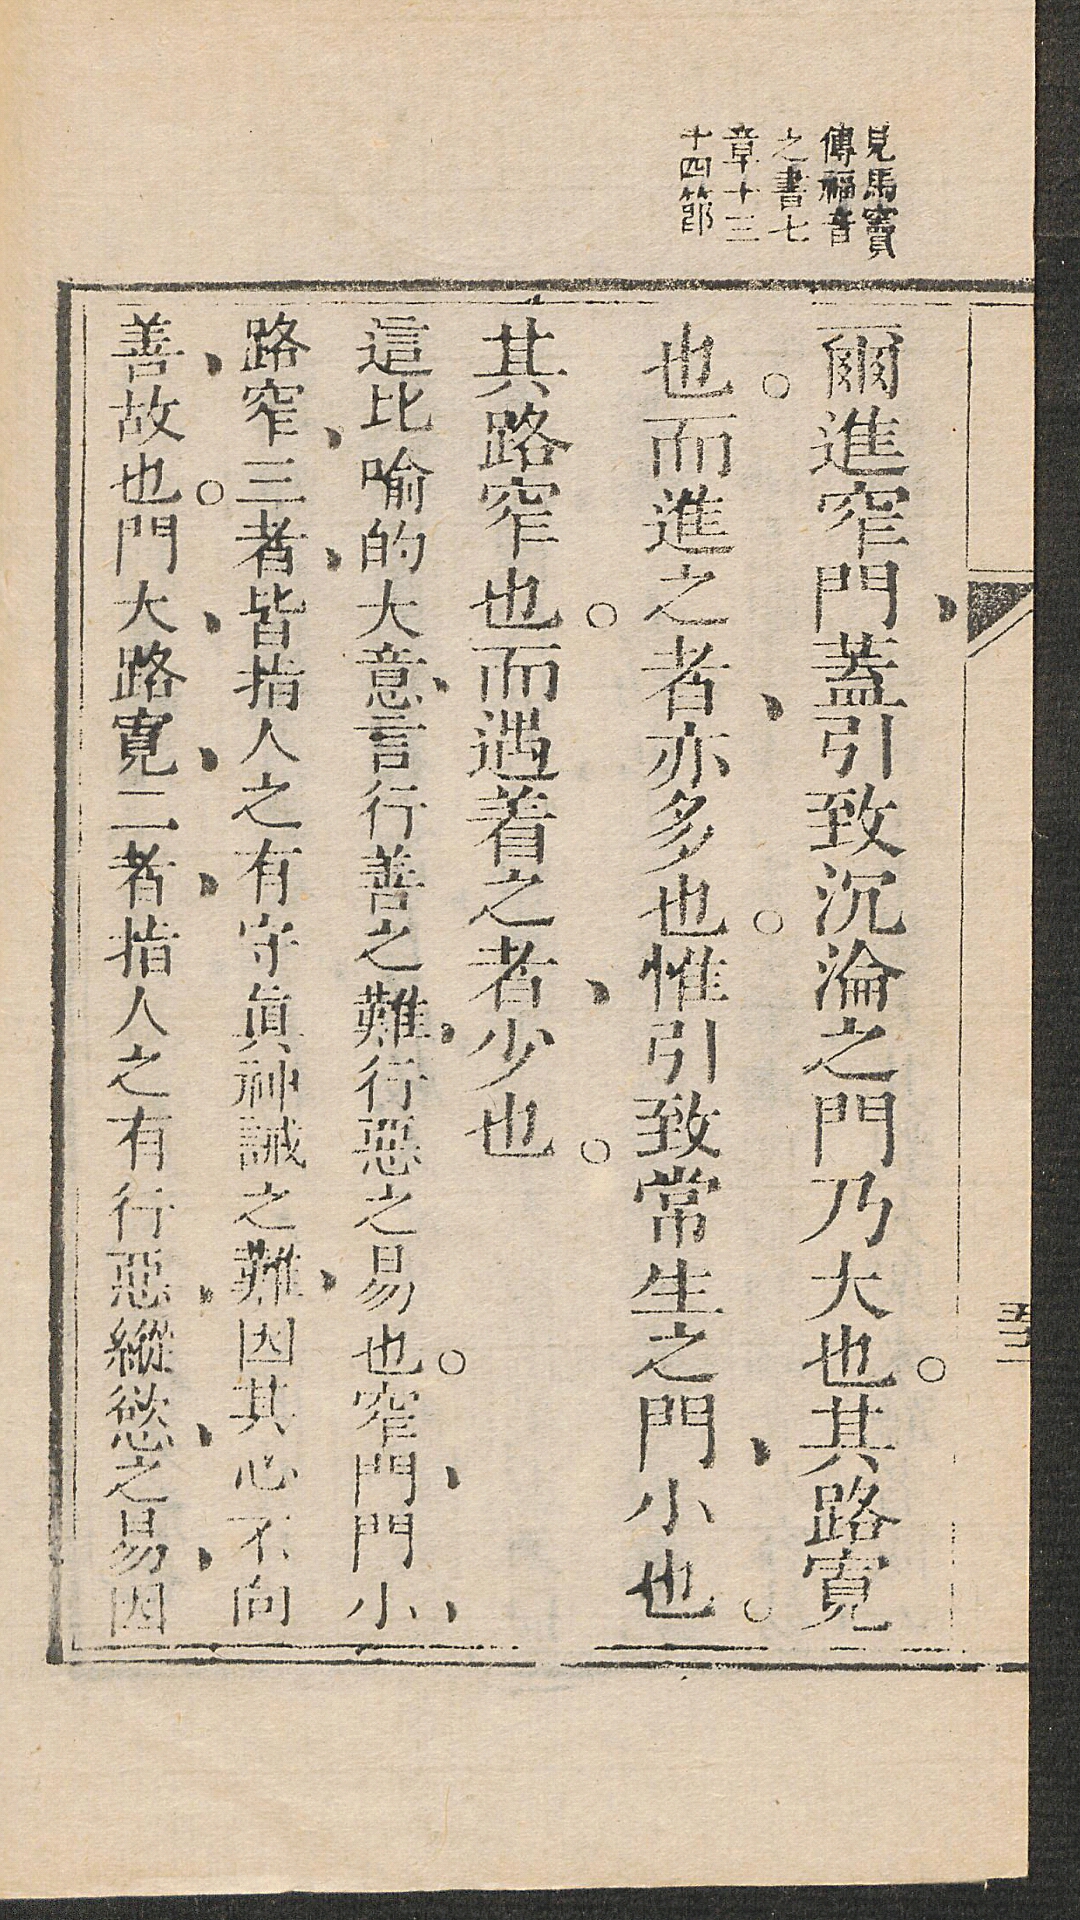 見馬竇
傳福音
之書七
章十三
十四節
爾進窄門、蓋引致沉淪之門乃大也。其路寬
也。而進之者、亦多也。惟引致常生之門、小也。
其路窄也。而遇着之者、少也。
這比喻的大意、言行善之難、行惡之易也。窄門、門小、
路窄、三者、皆指人之有守眞神誡之難、因其心不向
善、故也。門大、路寬、二者、指人之有行惡、縱慾、之易、因